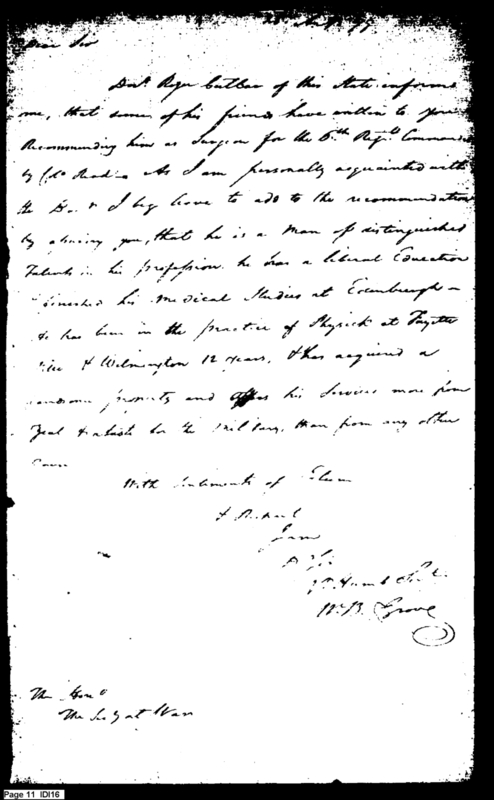 Dear Sir
Doctr Roger Cutlar of this State informs
me, that some of his friends have written to you
Recommending him as Surgeon for the 6th Regt Commanded
by As I am personally acquainted with
the Dor I beg leave to add to the recommendation
by assuring you, that he is a Man of distinguished
Talents in his profession. he has a liberal Education
finished his Medical Studies at Edenburgh -
& has been in the practice of Physick at Fayette
ville & Wilmington 12 years, & has acquired a
handsome property and offers his Services more from
Zeal & attachment for the Military, than from any other
Cause
With Sentiments of Esteem
& Respect
I am
D Sir
Yr Humb Sert.
Wm B. Grove
The Honle
The Secy at War
Page 11 IDI16